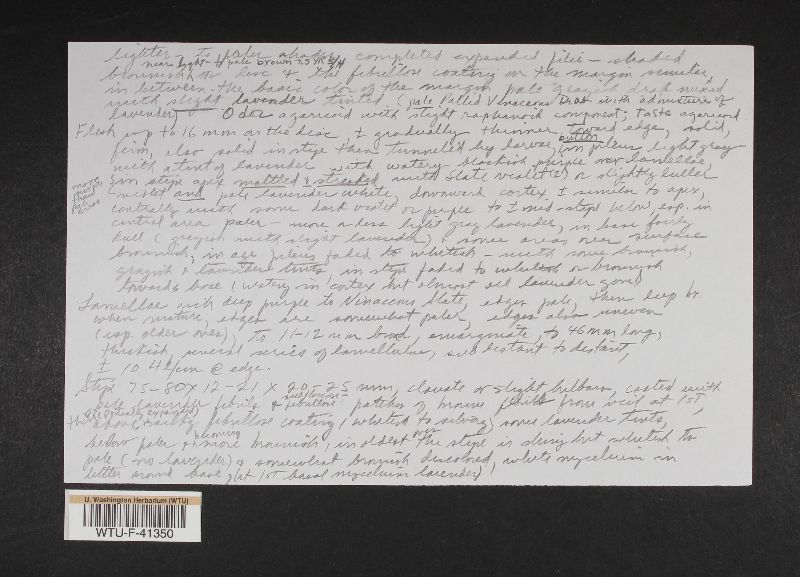 lighter to paler shades, completed expanded pilei - shaded
near light to pale brown 7.5 YR 5/4
brownish or live & the fibrillose coating on the margin
in between the basic color of the margin pale grayish drab mixed
with slight lavender tinted (pale Pallid Vinaceous Drab with admixture of
lavender) Odor agaricoid with slight raphanoid component; taste agaricoid.
Flesh up to 16 mm on the disc, ± gradually thinner toward edge, solid,
button
firm, also solid in stipe then tunneled by larvae, in pileus light gray
with a tint of lavender with watery blackish purple over lamellae,
in stipe apex mottled & streaked with slate violet (2) or slightly duller
more purple than gray areas
violet and pale lavender white, downward cortex ± similar to apex,
centrally with some dark violet or purple to ± mid stipe below, esp. in
central area paler - more or less light gray lavender, in base fairly
dull (grayish with slight lavender) & some areas near surface
brownish, in age pileus faded to whitish - with some brownish,
grayish & lavender tints, in stipe faded to whitish or brownish
towards base (watery in cortex but almost all lavender gone)
Lamellae rich deep purple to Vinaceous Slate, edges pale, then deep br
when mature, edges are somewhat paler, edges also uneven
(esp. older ones), to 11-12 mm broad, emarginate to 46 mm long,
thickish, several series of lamellulae, subdistant to distant,
± 10 4/cm @ edge.
Stipe 75-80 x 12-21 x 20-25 mm, clavate or slight bulbous, coated with
pale lavender fibrils & fibrillose patches of brown fibrils from veil at 1st,
above, fibrillose coating (whitish to silvery) some lavender tints,
becoming
below paler & more brownish, in oldest the stipe is shiny but whitish to
pale (no lavender) & somewhat brownish discolored, white mycelium in
litter around base, (at 1st basal mycelium lavender)
U. Washington Herbarium (WTU)
WTU-F-41350